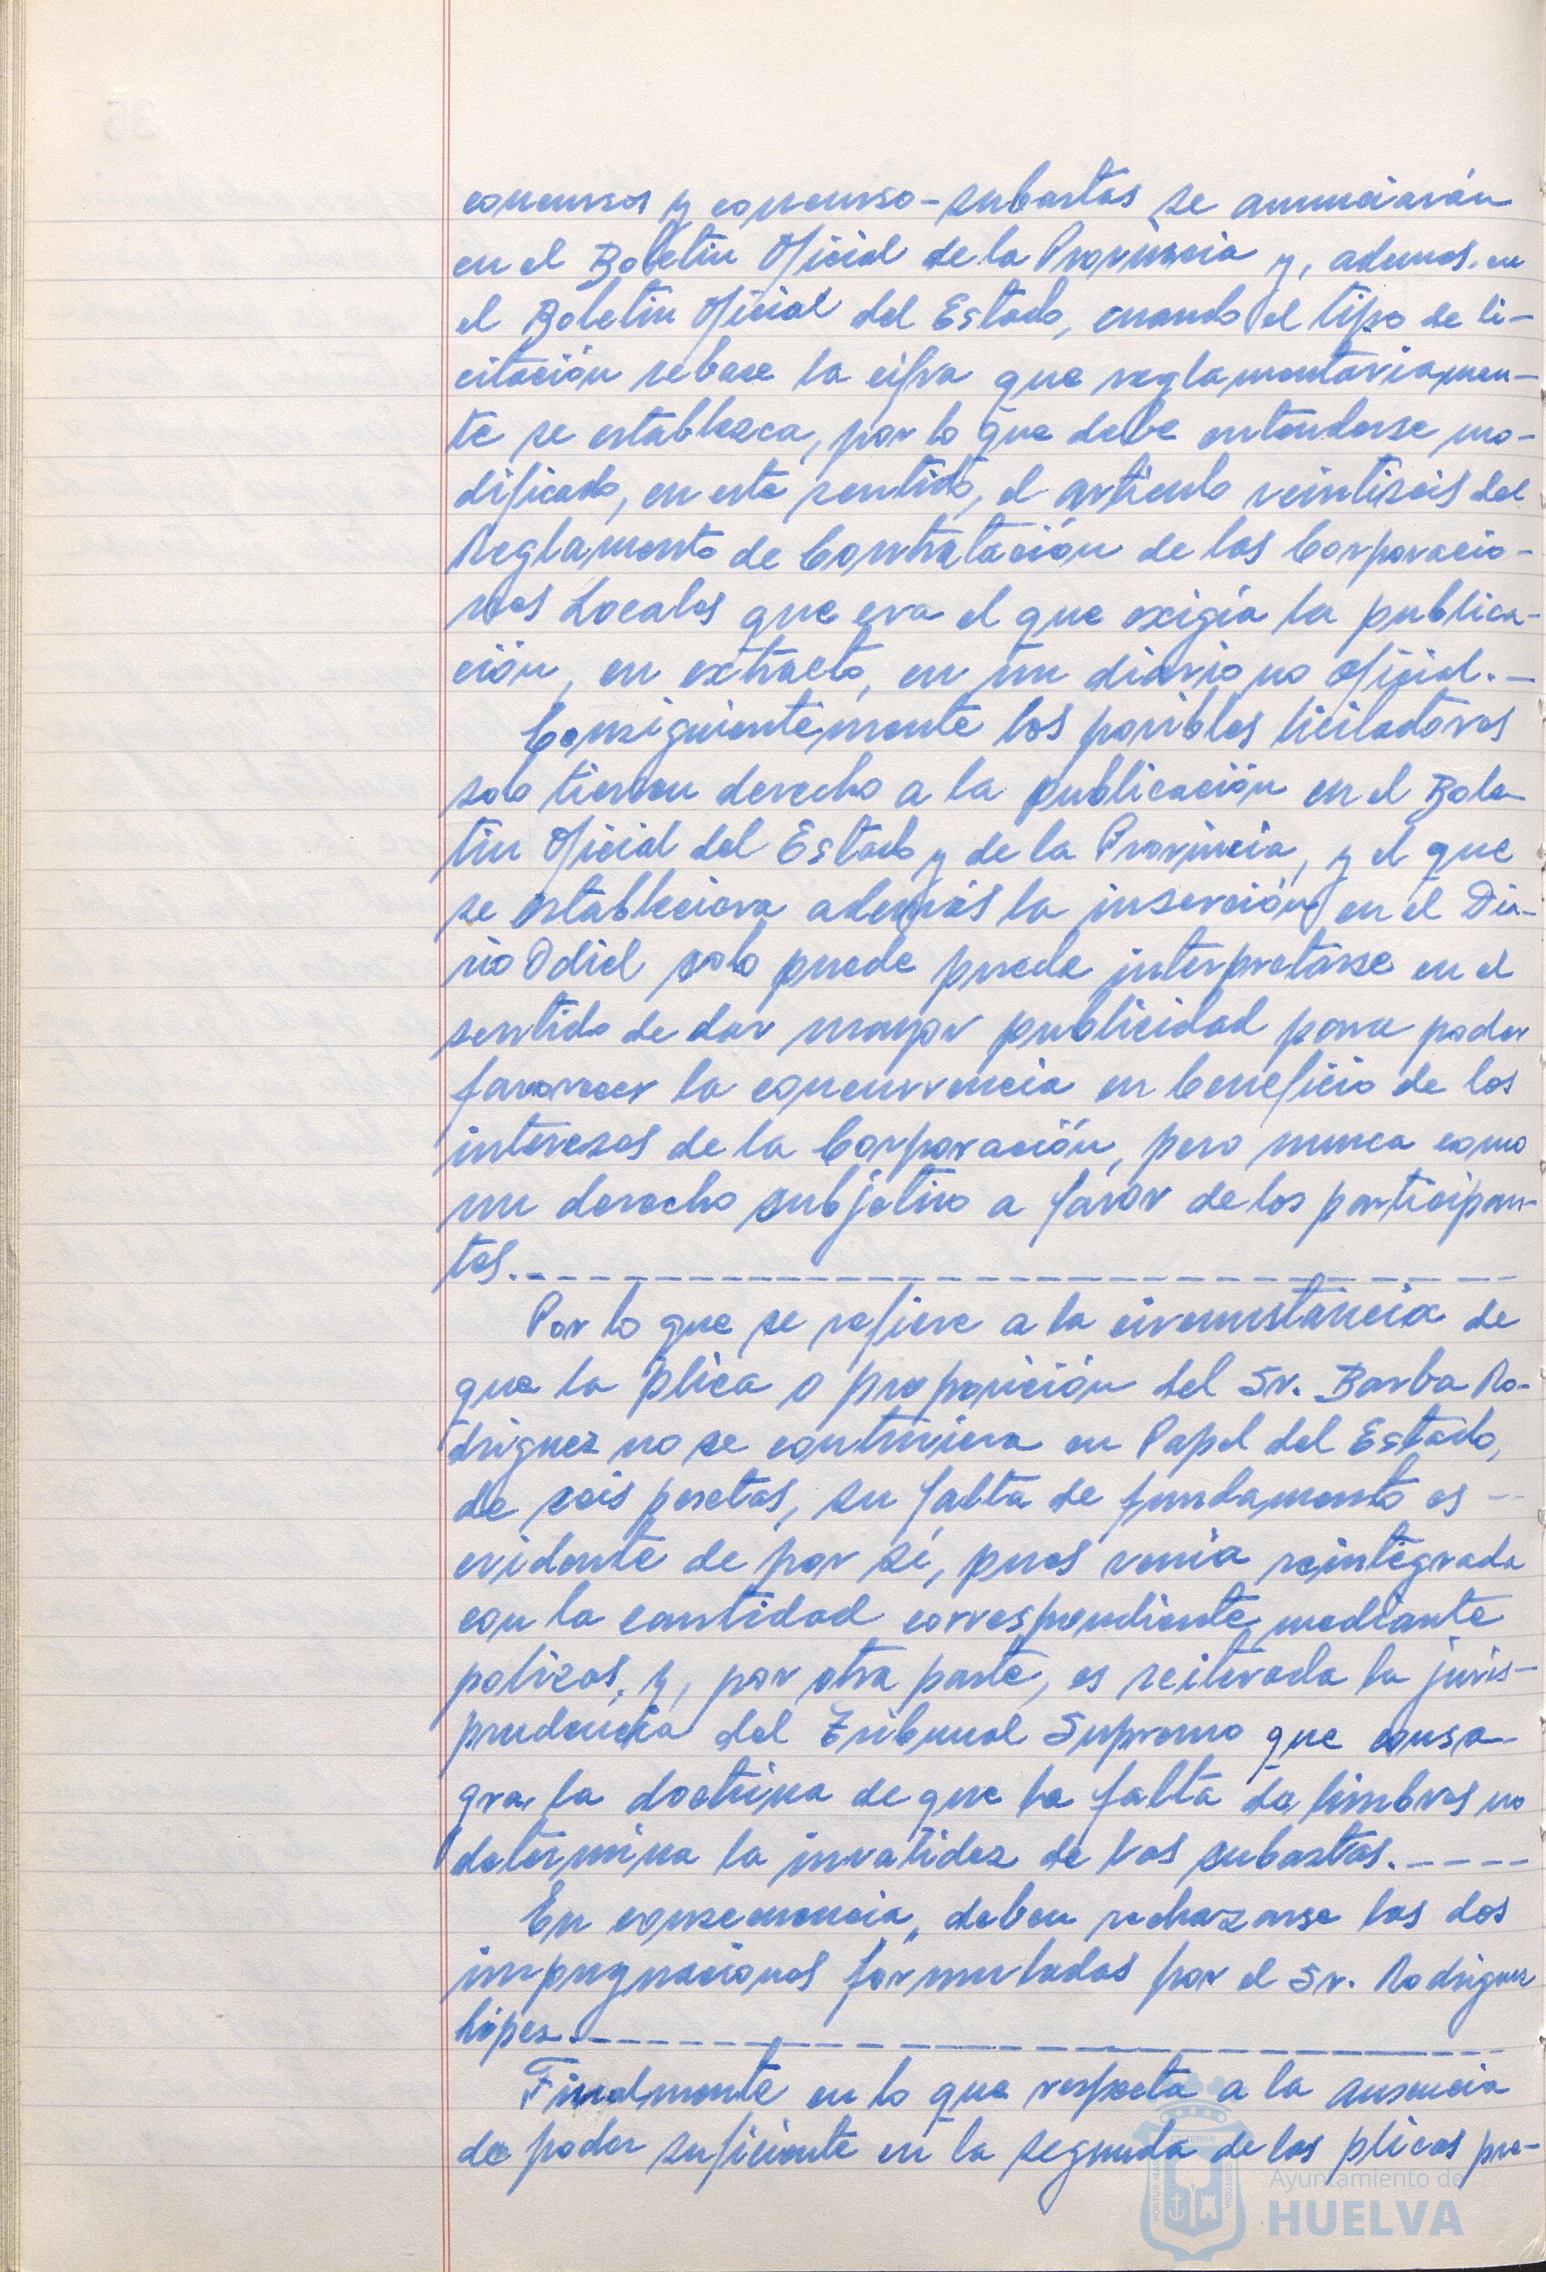 concursos y concurso-subastas se anunciarán
en el Boletin Oficial de la Provincia y, ademas. en
el Boletin Oficial del Estado, cuando el tipo de li-
citación rebase la cifra que reglamentariamen-
te se establezca, por lo que debe entenderse mo-
dificado, en este sentido, el artículo veintiseis del
Reglamento de Contratación de las Corporacio-
nes Locales que era el que exigía la publica-
ción, en extracto, en un diario no oficial.-
Consiguientemente los posibles licitadores
solo tienen derecho a la publicación en el Bole-
tin Oficial del Estado y de la Provincia, y el que
se estableciera además la inserción en el Dia-
rio Odiel solo puede puede interpretarse en el
sentido de dar mayor publicidad para poder
favorecer la concurrencia en beneficio de los
intereses de la Corporación, pero nunca como
un derecho subjetivo a favor de los participan-
tes.-
Por lo que se refiere a la circunstancia de
que la plica o proposición del Sr. Barba Ro-
driguez no se contuviera en Papel del Estado,
de seis pesetas, su falta de fundamento es -
evidente de por sí, pues venia reintegrada
con la cantidad correspondiente mediante
polizas, y, por otra parte, es reiterada la juris-
prudencia del Tribunal Supremo que consa-
gra la doctrina de que la falta de timbres no
determina la invalidez de las subastas.----
En consecuencia, deben rechazarse las dos
impugnaciones formuladas por el Sr. Rodriguez
López.-
Finalmente en lo que respecta a la ausencia
de poder suficiente en la segunda de las plicas pre-
PORTUS MARIS
ET TERRAE
CUSTODIA
Ayuntamiento de
HUELVA